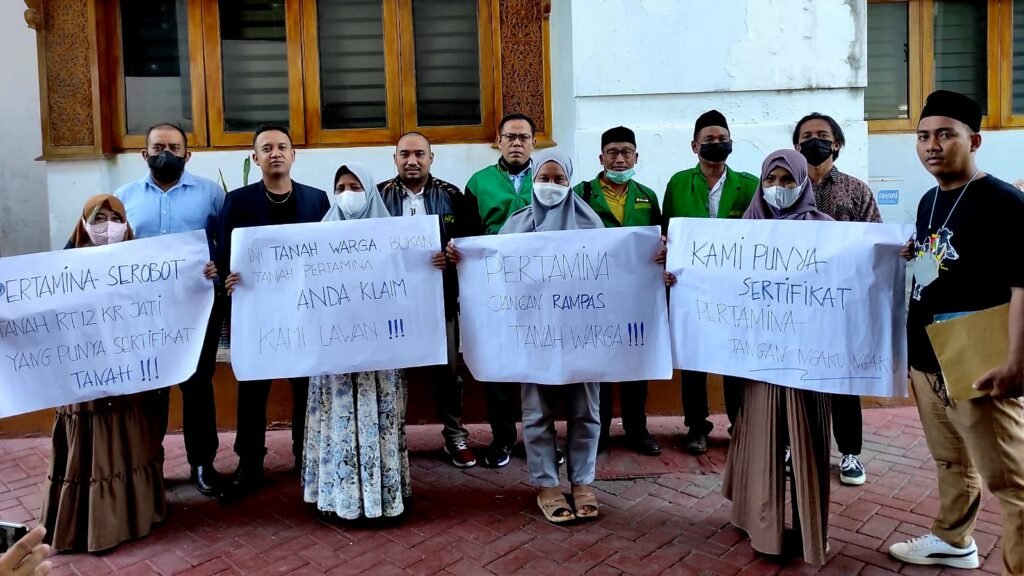 PERTAMINA SEROBOT
TANAH RT12 KR JATI
YANG PUNYA SERTIFIKAT
TANAH !!!
INI TANAH WARGA BUKAN
TANAH PERTAMINA
ANDA KLAIM
KAMI LAWAN !!!
PERTAMINA
JANGAN RAMPAS
TANAH WARGA !!!
KAMI PUNYA
SERTIFIKAT
PERTAMINA
JANGAN NGAKU NGAKU